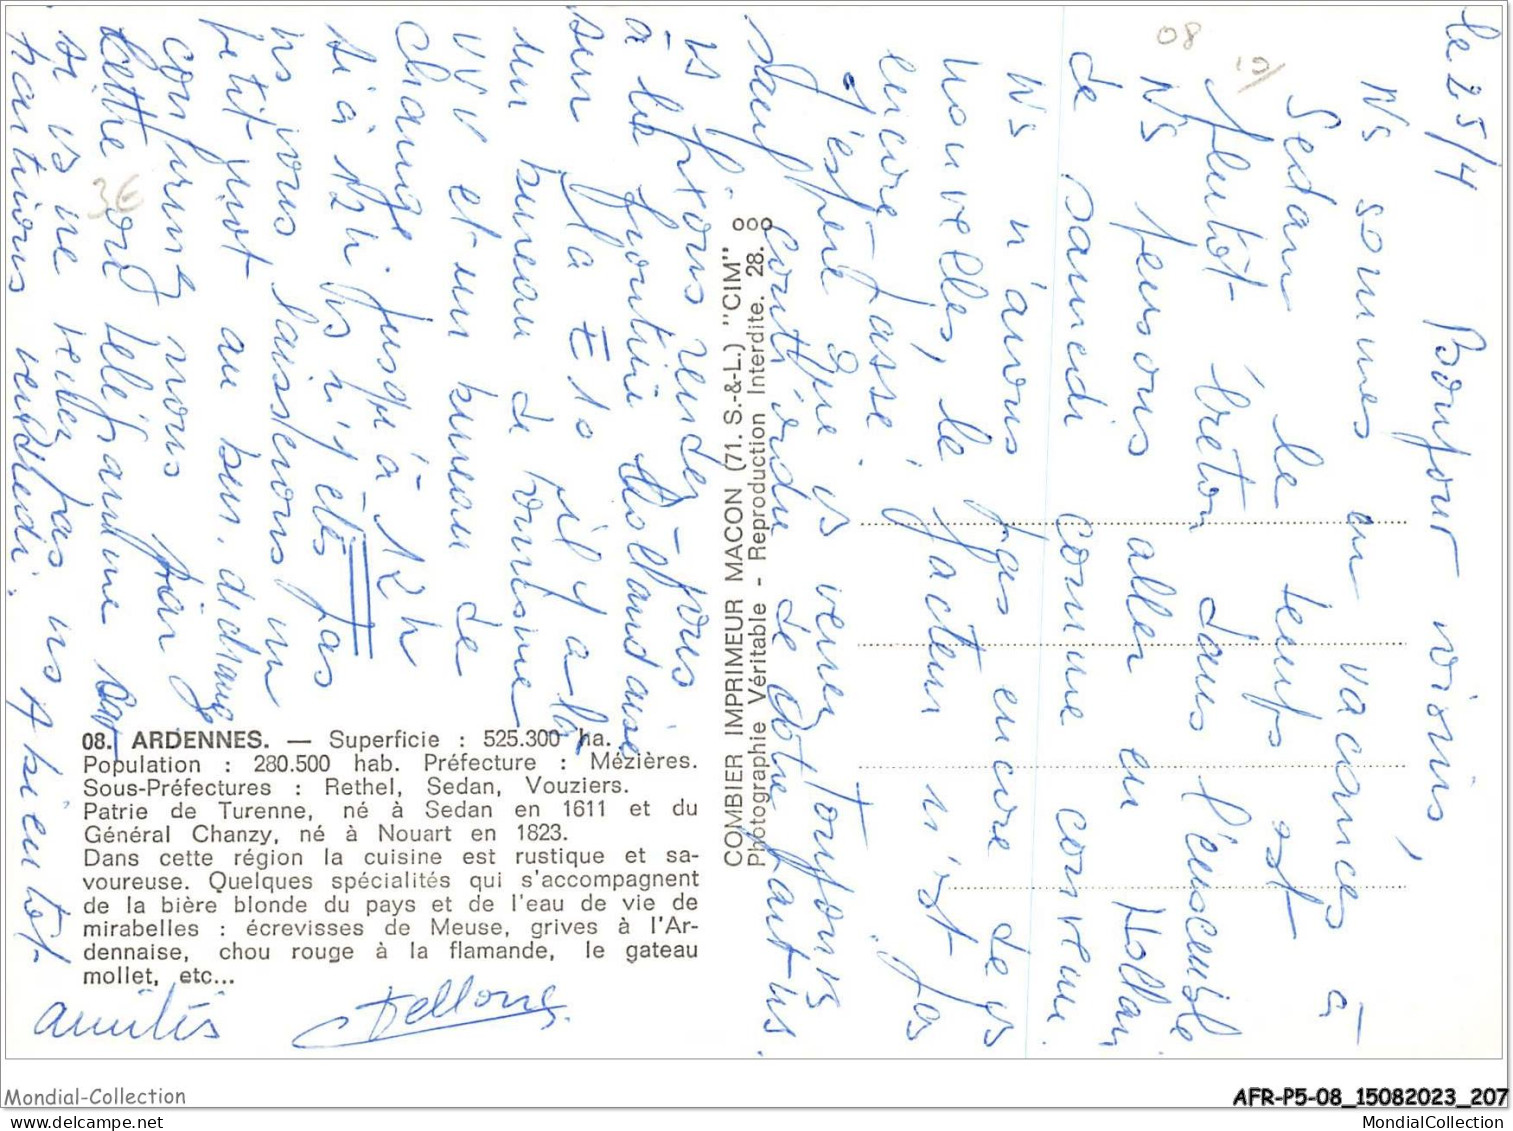 le 25/4 Bonjour voisins,
Ns sommes en vacances à
Sedan le temps est
plutôt breton dans l'ensemble
Ns pensons aller en Hollan
de samedi comme convenu.
Ns n'avons pas encore de vs
nouvelles, le facteur n'est pas
encore passé.
J'espère que vs venez toujours
Sauf contrordre de votre part ns
vs ferons rendez-vous
à la frontière Hollandaise
sur la E10 il y a là
un bureau de tourisme
VVV et un bureau de
change jusqu'à 12 h
si à 12 h ns n'y étés pas
ns vous laisserons un
petit mot au bur. de change
comme nous par
téléphone
si vs ne venez pas ns
partions vendredi. A bientôt
amitiés
08. ARDENNES. — Superficie : 525.300 ha.
Population : 280.500 hab. Préfecture : Mézières.
Sous-Préfectures : Rethel, Sedan, Vouziers.
Patrie de Turenne, né à Sedan en 1611 et du
Général Chanzy, né à Nouart en 1823.
Dans cette région la cuisine est rustique et sa-
voureuse. Quelques spécialités qui s'accompagnent
de la bière blonde du pays et de l'eau de vie de
mirabelles : écrevisses de Meuse, grives à l'Ar-
dennaise, chou rouge à la flamande, le gateau
mollet, etc...
COMBIER IMPRIMEUR MACON (71. S.-&-L.) "CIM"
Photographie Véritable - Reproduction Interdite. 28.
08
36
Mondial-Collection
AFR-P5-08_15082023_207
www.delcampe.net
MondialCollection